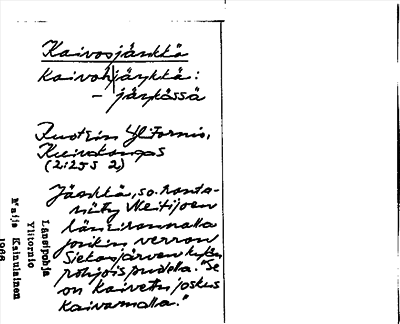 Kaivosjänkkä
Kaivohjänkkä:
– jänkässä
Ruotsin Ylitornio,
Kuivakangas
(2:255 2)
Jänkkä, so. honta-
niitty Mettijoen
länsirannalla
jonkin verran
Siekasjärven kylän
pohjoispuolella. "Se
on kaivettu joskus
kaivamalla."
Länsipohja
Ylitornio
Maija Kainulainen
1968